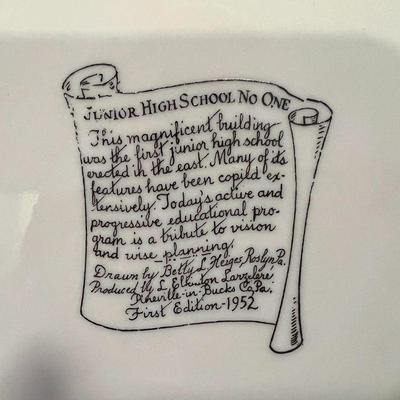 JUNIOR HIGH SCHOOL NO ONE
This magnificent building
was the first junior high school
erected in the east. Many of its
features have been copied ex-
tensively. Today's active and
progressive educational pro-
gram is a tribute to vision
and wise planning.
Drawn by Betty L. Heiges, Roslyn Pa.
Produced by L. Elkinton Larzelere
Pineville-in-Bucks Co. Pa.
First Edition-1952